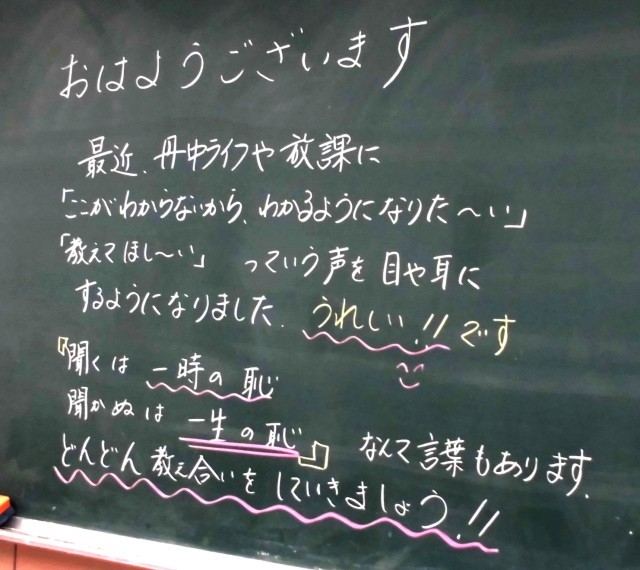 おはようございます
最近、丹中ライフや放課に
「ここがわからないから、わかるようになりた～い」
「教えてほし～い」 っていう声を目や耳に
するようになりました。うれしい!!です
『聞くは 一時の恥
聞かぬは 一生の恥』 なんて言葉もあります。
どんどん教え合いをしていきましょう!!